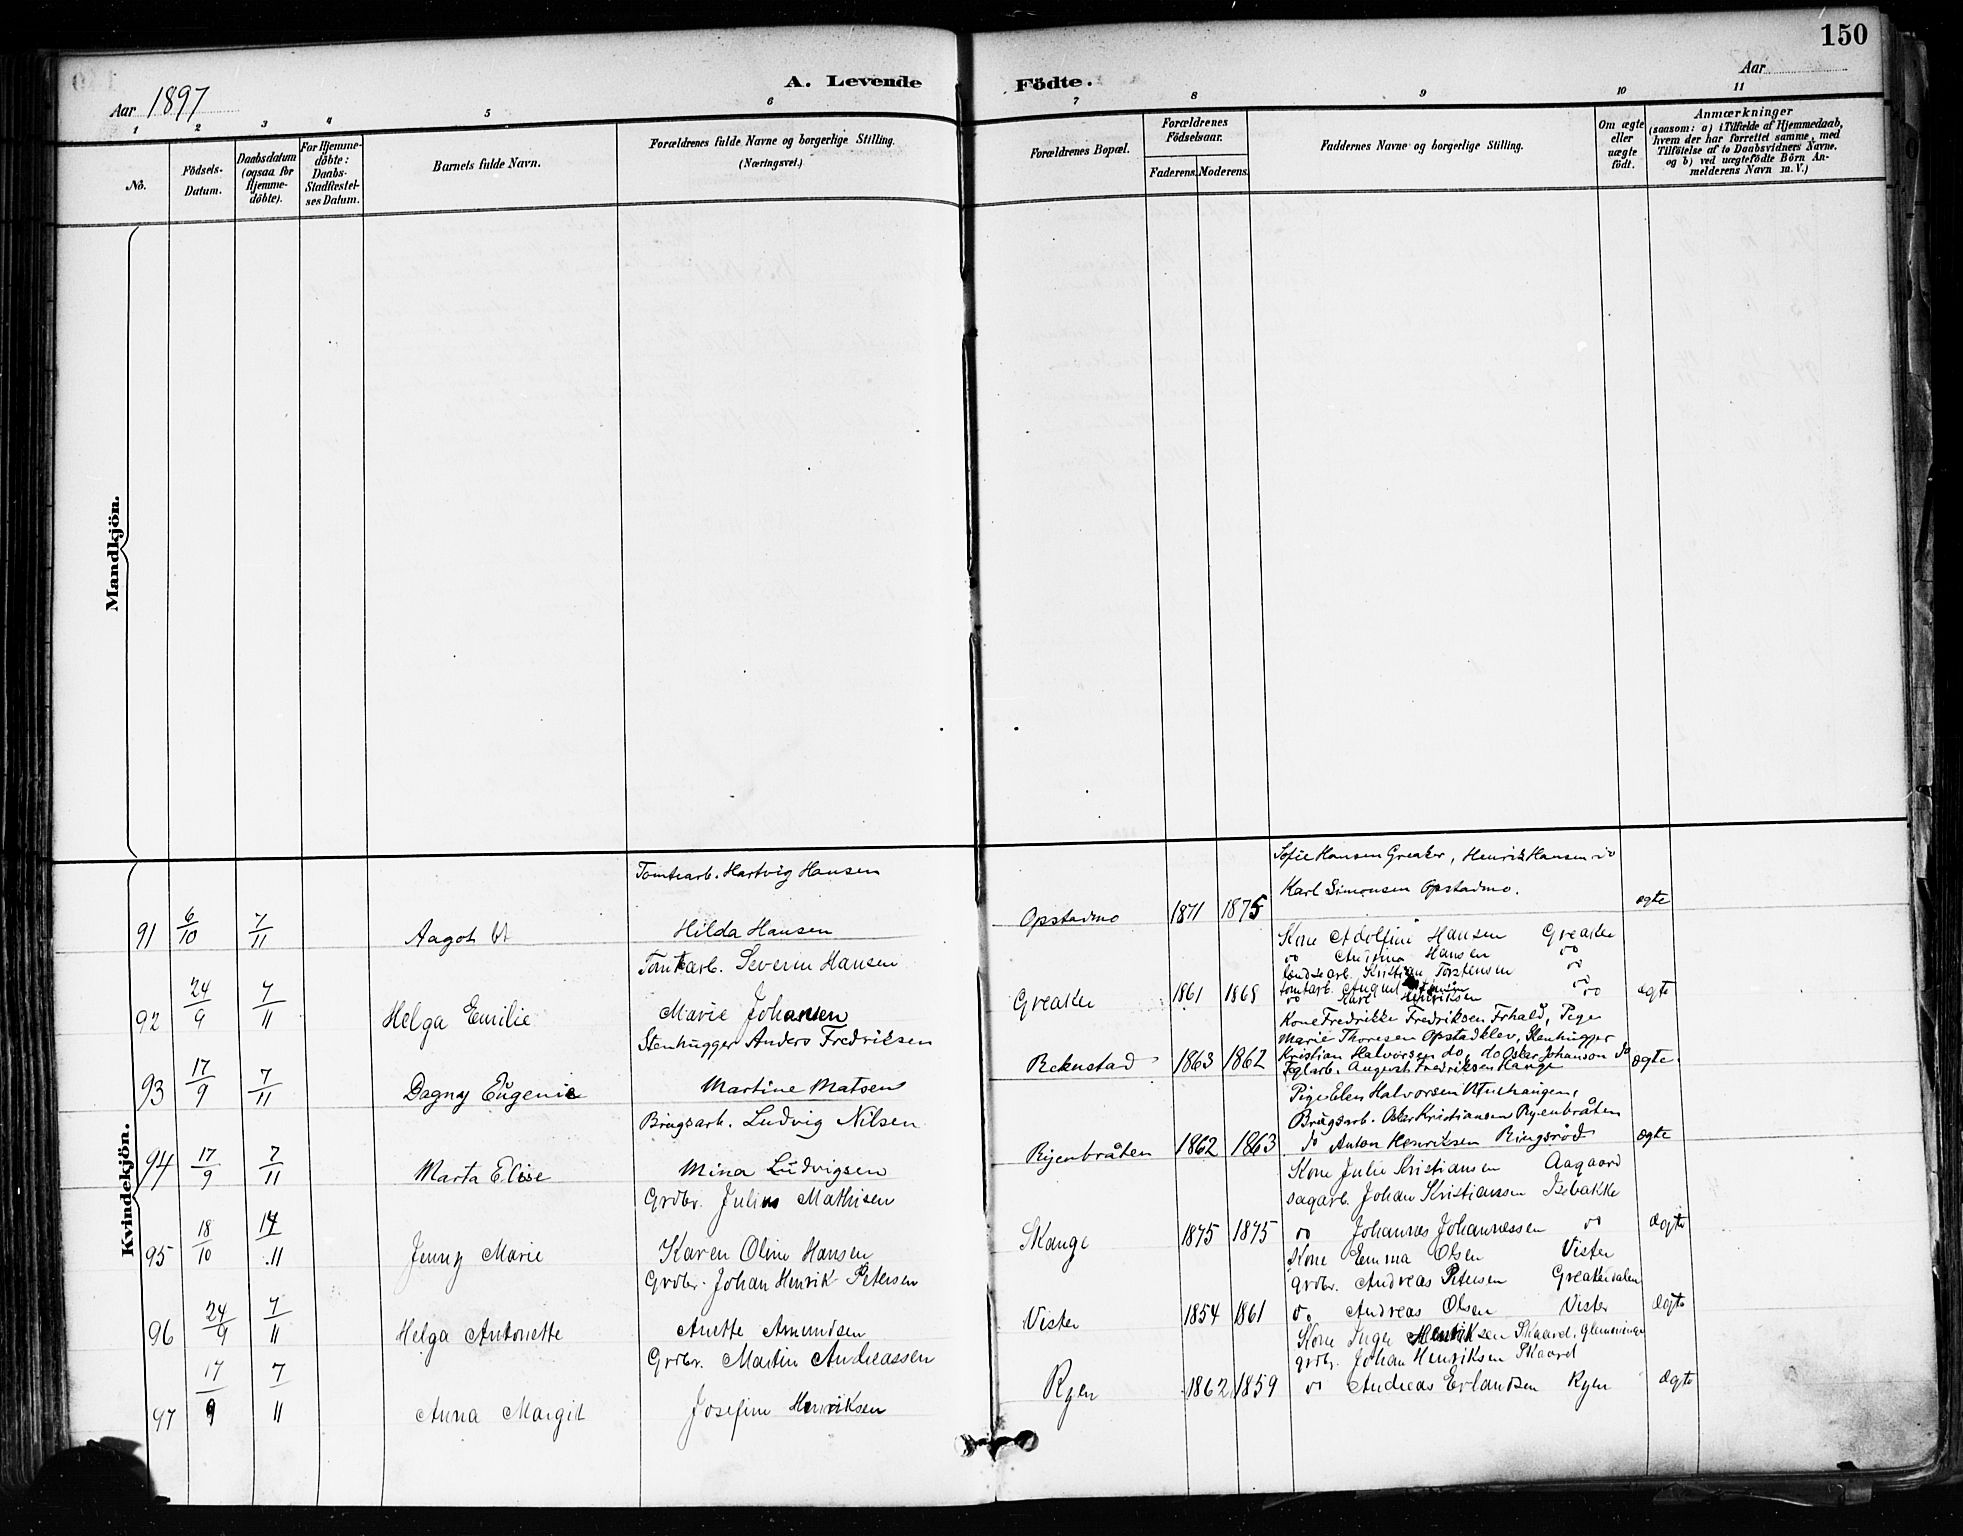 150
A. Levende Födte.
Aar 1897
Aar
1 2 3 4 5 6 7 8 9 10 11
No.
Födsels-Datum.
Daabsdatum (ogsaa for Hjemme-døbte).
For Hjemme-døbte: Daabs-Stadfæstelses Datum.
Barnets fulde Navn.
Forældrenes fulde Navne og borgerlige Stilling. (Næringsvei.)
Forældrenes Bopæl.
Forældrenes Födselsaar.
Faderens. Moderens.
Faddernes Navne og borgerlige Stilling.
Om ægte eller uægte født.
Anmærkninger
(saasom: a) i Tilfælde af Hjemmedaab, hvem der har forrettet samme, med Tilføielse af to Daabsvidners Navne. og b) ved uægtefödte Börn Anmelderens Navn m. V.)
Mandkjön.
Kvindekjön.
Tomtearb. Hartvig Hansen
Sofie Hansen Greaker, Henrik Hansen do
Karl Simonsen Opstadmo.
91 6/10 7/11 Aagot Hilda Hansen Opstadmo 1871 1875 ægte
Tomtearb. Severin Hansen
Kone Adolfine Hansen Greaker
do Hansen do
Kristian Torstensen do
tomtarb. August do
do Karl Henriksen do
92 24/9 7/11 Helga Emilie Marie Johansen Greaker 1861 1868 ægte
Stenhugger Anders Fredriksen
Kone Fredrikke Fredriksen Frhald, Pige
Marie Thoresen Opstadklev, Stenhugger
Kristian Halvorsen do, do Oskar Johanson do
Teglarb. August Fredriksen Hauge
93 17/9 7/11 Dagny Eugenie Martine Matsen Rekustad 1863 1862 ægte
Brugsarb. Ludvig Nilsen
Pige Elen Halvorsen
Brugsarb. Oskar Kristiansen Ryenbråten
do Anton Henriksen Ringsrød
94 17/9 7/11 Marta Elise Mina Ludvigsen Ryenbråten 1862 1863 ægte
Grdbr. Julius Mathisen
Kone Julie Kristiansen Aagaard
sagarb. Johan Kristianssen Isebakke
do Johannes Johannessen do
95 18/10 14/11 Jenny Marie Karen Oline Hansen Skauge 1875 1875 ægte
Grdbr. Johan Henrik Petersen
Kone Emma Olsen Vister
grdbr. Andreas Petersen Greakerdalen
do Andreas Olsen Vister
96 24/9 7/11 Helga Antonette Anette Amundsen Vister 1854 1861 ægte
Grdbr. Martin Andreassen
Kone Inger Henriksen Skaard, Glemminge
grdbr. Johan Henriksen Skaard
do Andreas Erlandsen Ryen
97 17/9 7/11 Anna Margit Josefine Henriksen Ryen 1862 1859 ægte